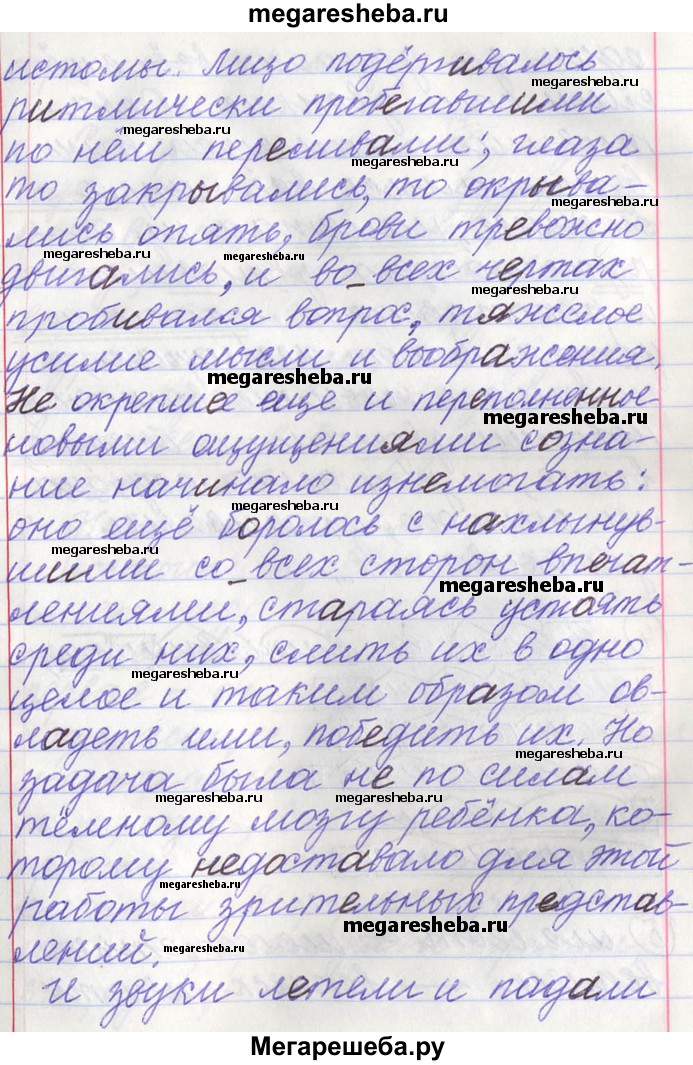 megaresheba.ru
истомы. Лицо подёргивалось
megaresheba.ru
ритмически пробегавшими
megaresheba.ru
по нём переливами; глаза
megaresheba.ru
то закрывались, то окрыва-
megaresheba.ru
лись опять, брови тревожно
megaresheba.ru megaresheba.ru
двигались, и во всех чертах
megaresheba.ru
пробивался вопрос, тяжелое
усилие мысли и воображения.
megaresheba.ru
Не окрепшее еще и переполненное
megaresheba.ru
новыми ощущениями созна-
ние начинало изнемогать:
megaresheba.ru
оно ещё боролось с нахлынув-
megaresheba.ru
шими со всех сторон впечат-
megaresheba.ru
лениями, стараясь устоять
среди них, слить их в одно
megaresheba.ru
целое и таким образом ов-
ладеть ими, победить их. Но
megaresheba.ru
задача была не по силам
megaresheba.ru megaresheba.ru
тёмному мозгу ребёнка, ко-
торому недоставало для этой
megaresheba.ru
работы зрительных представ-
megaresheba.ru
лений.
megaresheba.ru
И звуки летели и падали
Мегарешеба.ру